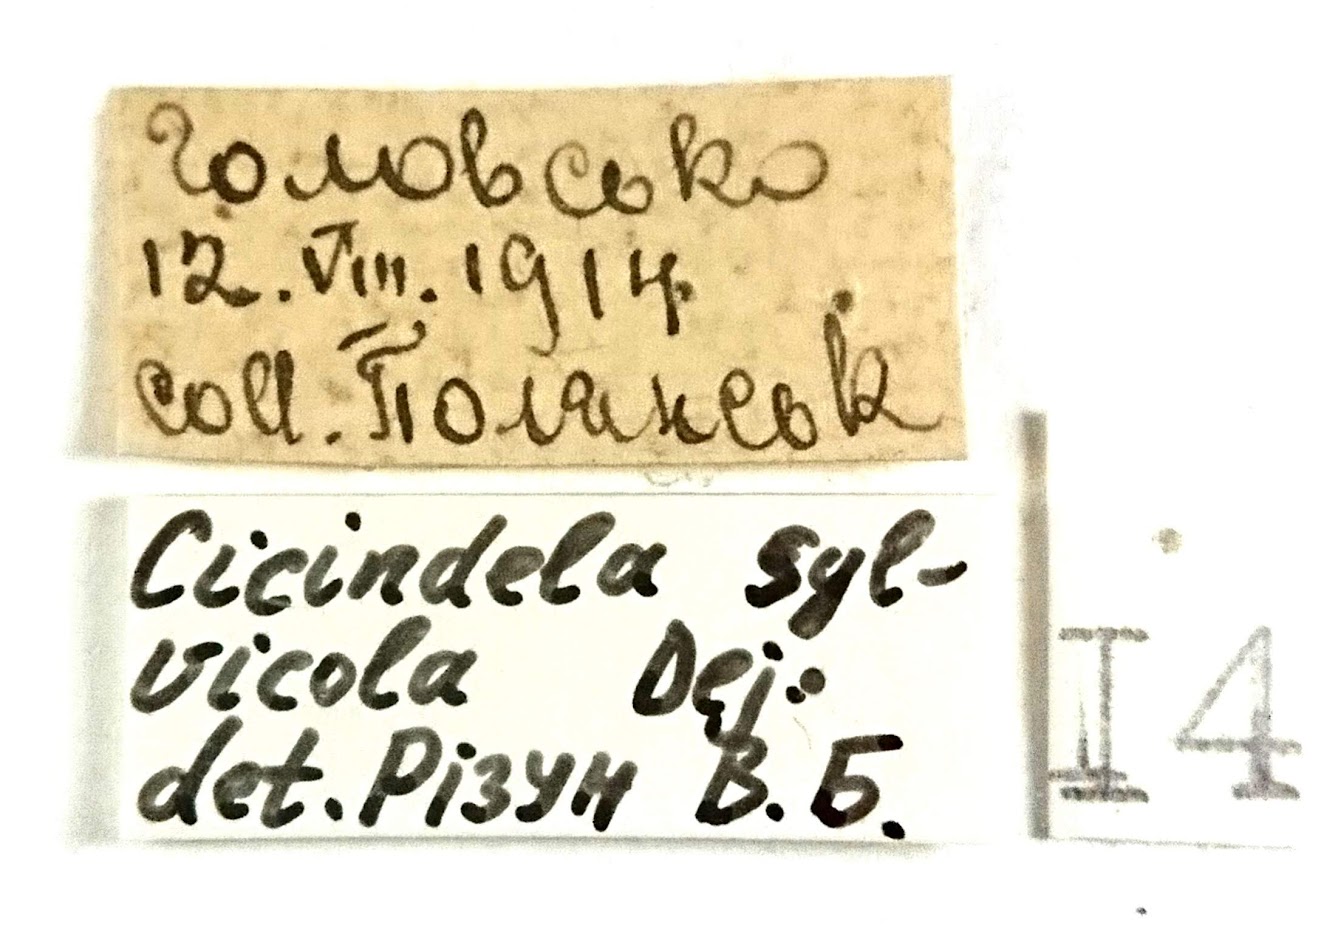 Головсько
12.VIII.1914
coll. Полянськ
Cicindela syl-
vicola Dej.
det. Різун В.Б.
I4